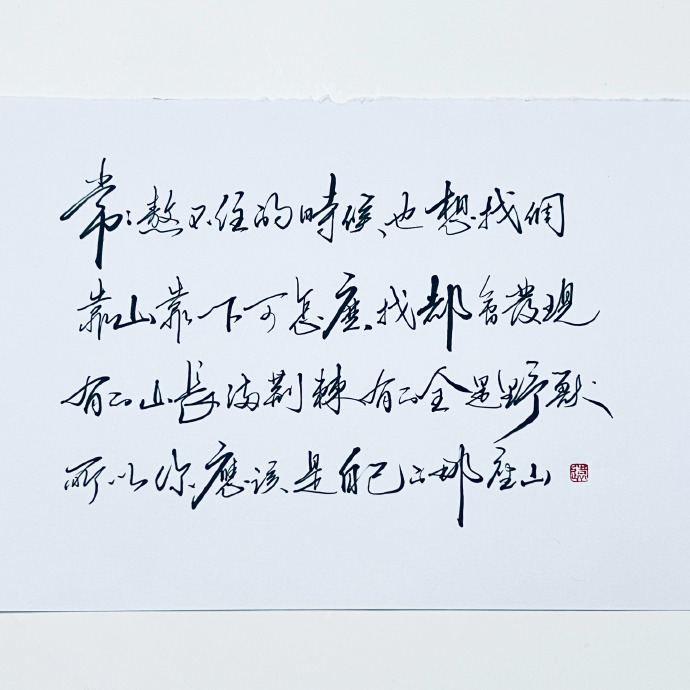 常常熬不住的時候,也想找個
靠山靠一下可怎麼找都會發現
有的山長滿荊棘有的全是野獸
所以你應該是自己的那座山